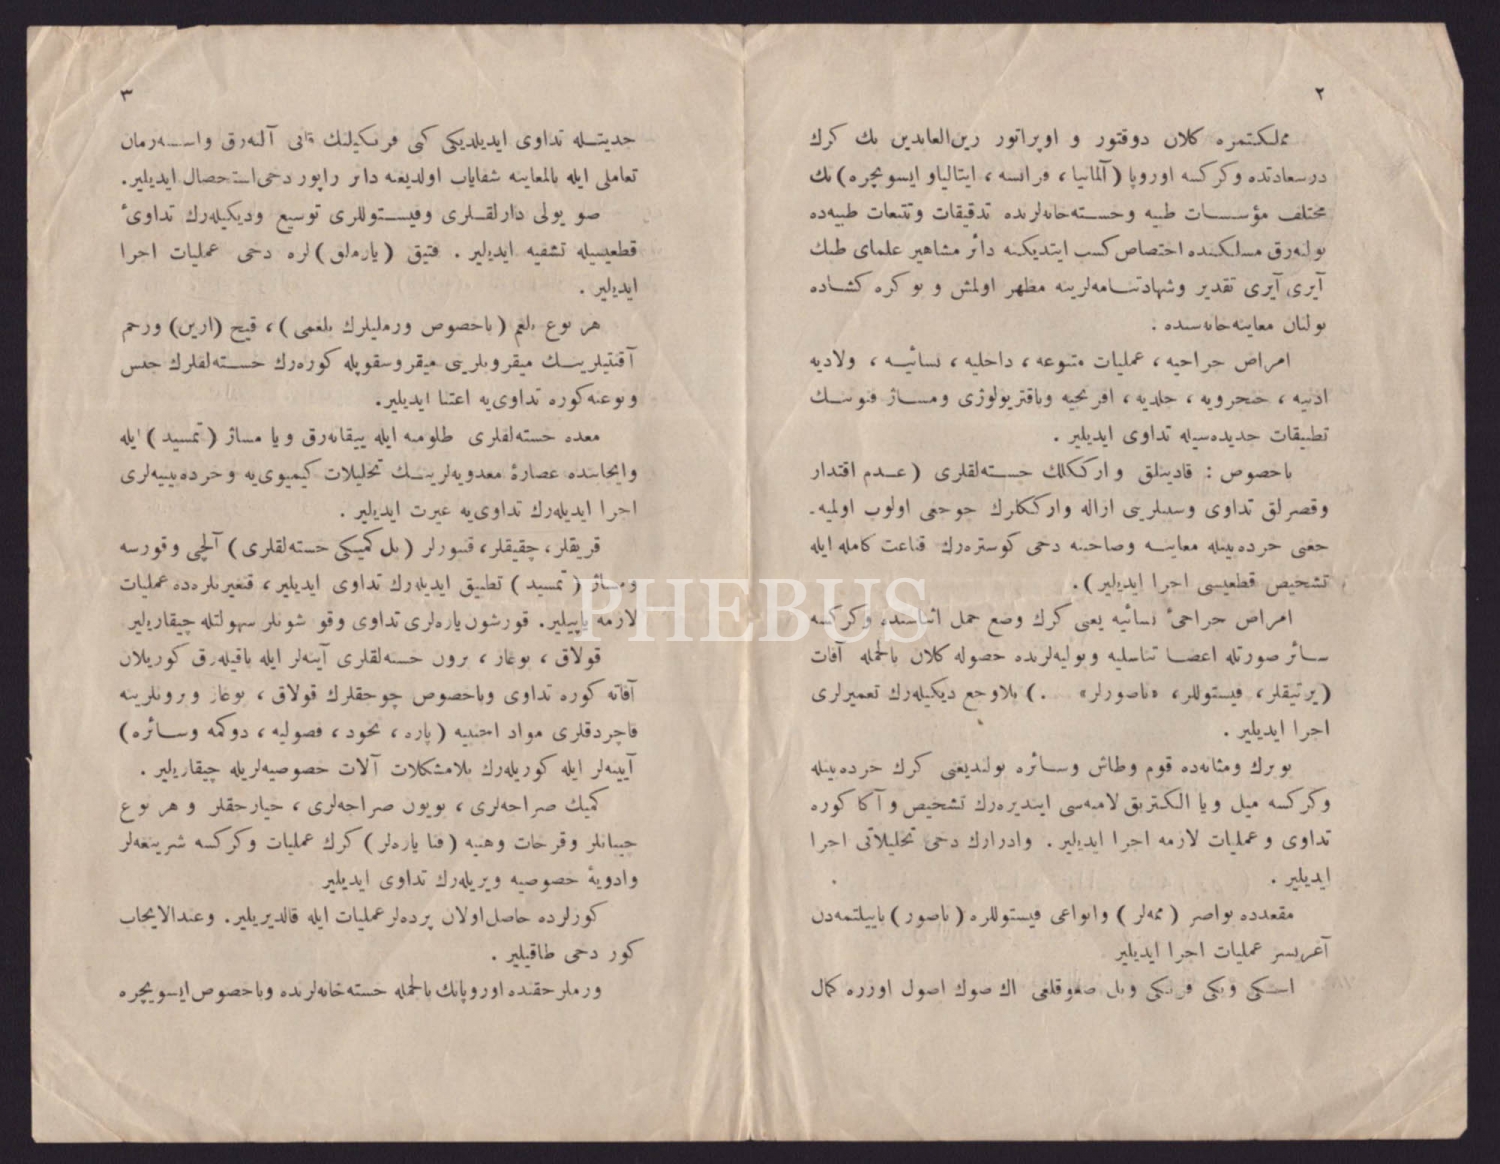 ٢
مملكتمزه كلان دوقتور و اوپراتور زين العابدين بك كرك
درسعادتده وكركسه اوروپا (آلمانيا، فرانسه، ايتاليا و ايسويچره) نك
مختلف مؤسسات طبيه وخسته‌خانه‌لرنده تدقيقات وتتبعات طبيه‌ده
بولنه‌رق مسلكنده اختصاص كسب ايتديكنه دائر مشاهير علماى طبك
آيرى آيرى تقدير وشهادتنامه‌لرينه مظهر اولمش و بو كره كشاده
بولنان معاينه‌خانه‌سنده :
امراض جراحيه، عمليات متنوعه، داخليه، نسائيه، ولاديه
اذنيه، حنجرويه، جلديه، افرنجيه وباقتريولوژى ومساژ فنوننك
تطبيقات جديده‌سيله تداوى ايديلير .
باخصوص : قادينلق و ارككلك خسته‌لقلرى (عدم اقتدار
وقصرلق تداوى وسببلرينى ازاله وارككلرك چوجغى اولوب اوليه‌-
جغنى خرده‌بينله معاينه وصاحبنه دخى كوستره‌رك قناعت كامله ايله
تشخيص قطعيسى اجرا ايديلير) .
امراض جراحىٔ نسائيه يعنى كرك وضع حمل اثناسنده وكركسه
سائر صورتله اعضا تناسليه وبوليه‌لرنده حصوله كلان بالجمله آفات
(يرتيقلر، فيستوللر، «ناصورلر» .) بلاوجع ديكيله‌رك تعميرلرى
اجرا ايديلير .
بوبرك ومثانه‌ده قوم وطاش وسائره بولنديغنى كرك خرده‌بينله
وكركسه ميل ويا الكتريق لامبه‌سى اينديره‌رك تشخيص و آكا كوره
تداوى و عمليات لازمه اجرا ايديلير . وادرارك دخى تحليلاتى اجرا
ايديلير .
مقعدده بواصر (ممه‌لر) وانواعى فيستوللره (ناصور) باييلتمه‌دن
آغريسز عمليات اجرا ايديلير
اسكى ويكى فرنكى وبل صغوقلغى اك صوك اصول اوزره كمال
٣
جديتله تداوى ايديلديكى كبى فرنكيلنك قانى آلنه‌رق واسه‌رمان
تعاملى ايله بالمعاينه شفاياب اولديغنه دائر راپور دخى استحصال ايديلير.
صو يولى دارلقلرى وفيستوللرى توسيع وديكيله‌رك تداوىٔ
قطعيسيله تشفيه ايديلير . فتيق (ياره‌لق) لره دخى عمليات اجرا
ايديلير .
هر نوع بلغم (باخصوص ورمليلرك بلغمى)، قيح (ارين) ورحم
آقنتيلرينك ميقروبلرينى ميقروسقوپله كوره‌رك خسته‌لقلرك جنس
ونوعنه كوره تداوى‌يه اعتنا ايديلير.
معده خسته‌لقلرى طلومبه ايله ييقانه‌رق ويا مساژ (تمسيد) ايله
وايجابنده عصارۀ معدويه‌لرينك تحليلات كيميوى‌يه وخرده‌بينيه‌لرى
اجرا ايديله‌رك تداوى‌يه غيرت ايديلير .
قريقلر، چقيقلر، قنبورلر (بل كميكى خسته‌لقلرى) آلچى وقورسه
ومساژ (تمسيد) تطبيق ايديله‌رك تداوى ايديلير، قنغرنلرده عمليات
لازمه ياپيلير. قورشون ياره‌لرى تداوى وقو شونلر سهولتله چيقاريلير.
قولاق، بوغاز، برون خسته‌لقلرى آينه‌لر ايله باقيله‌رق كوريلان
آفاته كوره تداوى وباخصوص چوجقلرك قولاق، بوغاز وبرونلرينه
قاچردقلرى مواد اجنبيه (پاره، نخود، فصوليه، دوكمه وسائره)
آيينه‌لر ايله كوريله‌رك بلامشكلات آلات خصوصيه‌لريله چيقاريلير .
كميك صراجه‌لرى، بويون صراجه‌لرى، خيارجقلر و هر نوع
چبانلر وقرحات وهنيه (فنا ياره‌لر) كرك عمليات وكركسه شرينغه‌لر
وادويۀ خصوصيه ويريله‌رك تداوى ايديلير
كوزلرده حاصل اولان پرده‌لر عمليات ايله قالديريلير. وعندالايجاب
كوز دخى طاقيلير .
ورملر حقنده اوروپانك بالجمله خسته‌خانه‌لرنده وباخصوص ايسويچره
PHEBUS